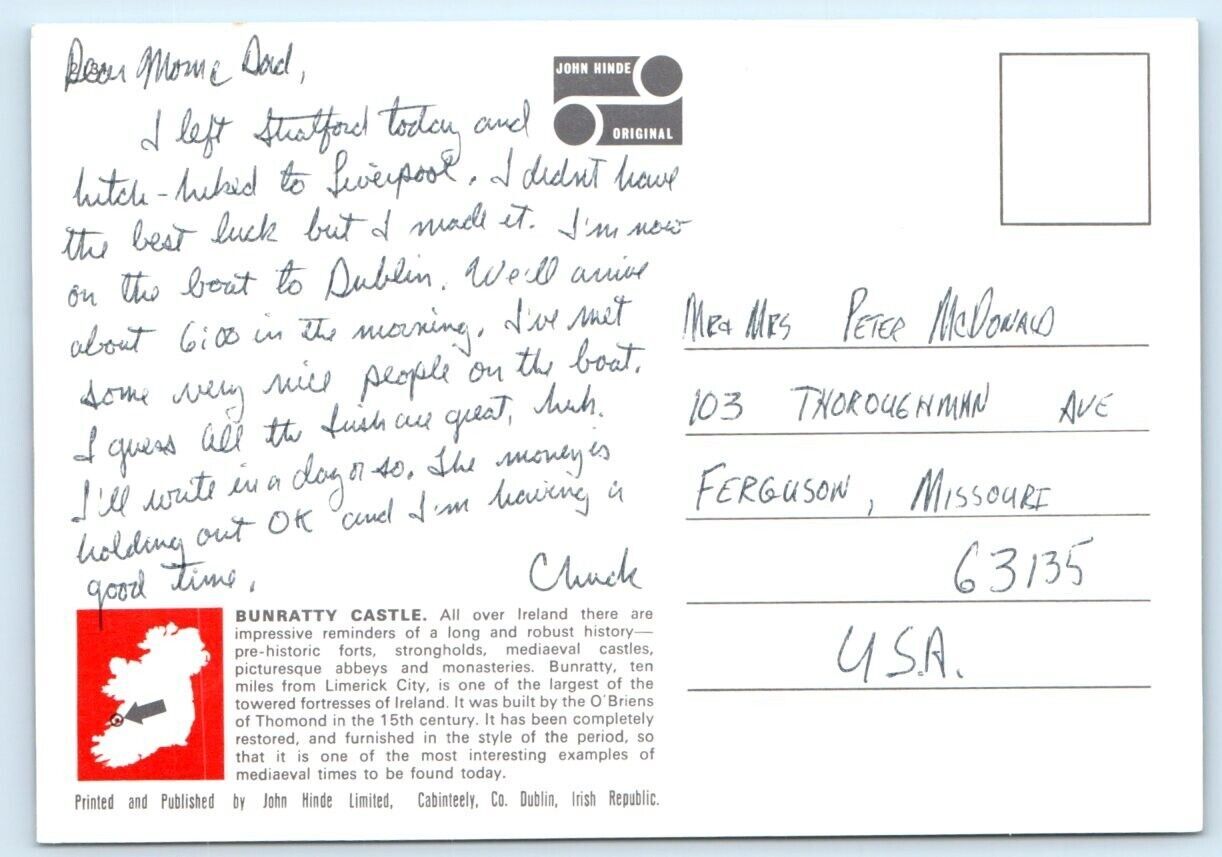 Dear Mom & Dad,
I left Stratford today and
hitch-hiked to Liverpool. I didn't have
the best luck but I made it. I'm now
on the boat to Dublin. We'll arrive
about 6:00 in the morning. I've met
some very nice people on the boat.
I guess all the Irish are great, huh.
I'll write in a day or so. The money is
holding out OK and I'm having a
good time.
Chuck
JOHN HINDE
ORIGINAL
Mr & Mrs Peter McDonald
103 Thoroughman Ave
Ferguson, Missouri
63135
U.S.A.
BUNRATTY CASTLE. All over Ireland there are
impressive reminders of a long and robust history—
pre-historic forts, strongholds, mediaeval castles,
picturesque abbeys and monasteries. Bunratty, ten
miles from Limerick City, is one of the largest of the
towered fortresses of Ireland. It was built by the O'Briens
of Thomond in the 15th century. It has been completely
restored, and furnished in the style of the period, so
that it is one of the most interesting examples of
mediaeval times to be found today.
Printed and Published by John Hinde Limited, Cabinteely, Co. Dublin, Irish Republic.